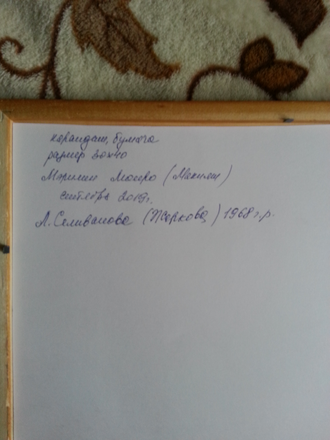 карандаш, бумага
размер 30х40
Мэрилин Монро (Мэнсли)
2019г.
Л. Селиванова (Жаркова) 1968 г.р.